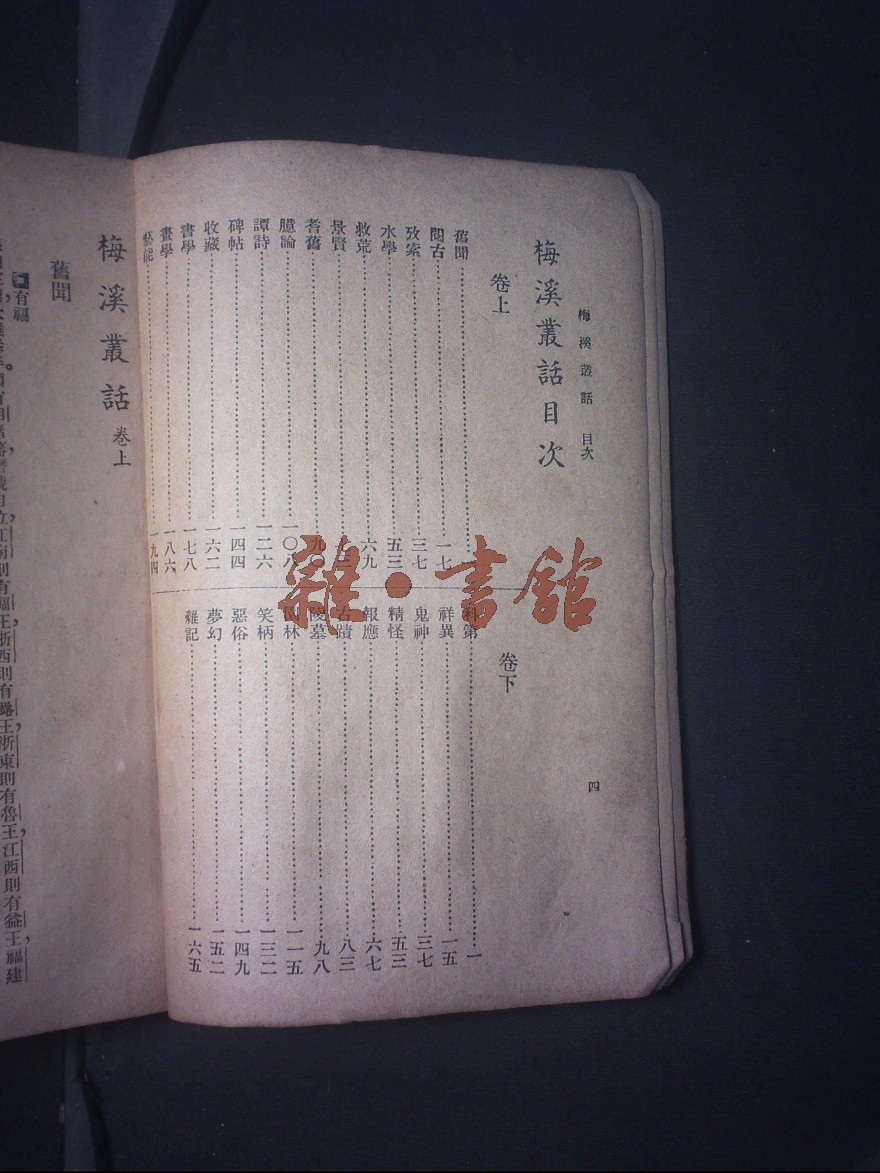 梅溪叢話 目次 四
梅溪叢話目次
卷上
舊聞
閱古 一七
攷索 三七
水學 五三
救荒 六九
景賢
耆舊 九〇
臆論 一〇八
譚詩 一二六
碑帖 一四四
收藏 一六二
書學 一七八
畫學 一八六
藝能 一九四
卷下
科第 一
祥異 一五
鬼神 三七
精怪 五三
報應 六七
古蹟 八三
陵墓 九八
園林 一一五
笑柄 一三二
惡俗 一四九
夢幻 一五二
雜記 一六五
雜·書館
梅溪叢話 卷上
舊聞
有福
江南則有福王,浙西則有潞王,浙東則有魯王,江西則有益王,福建